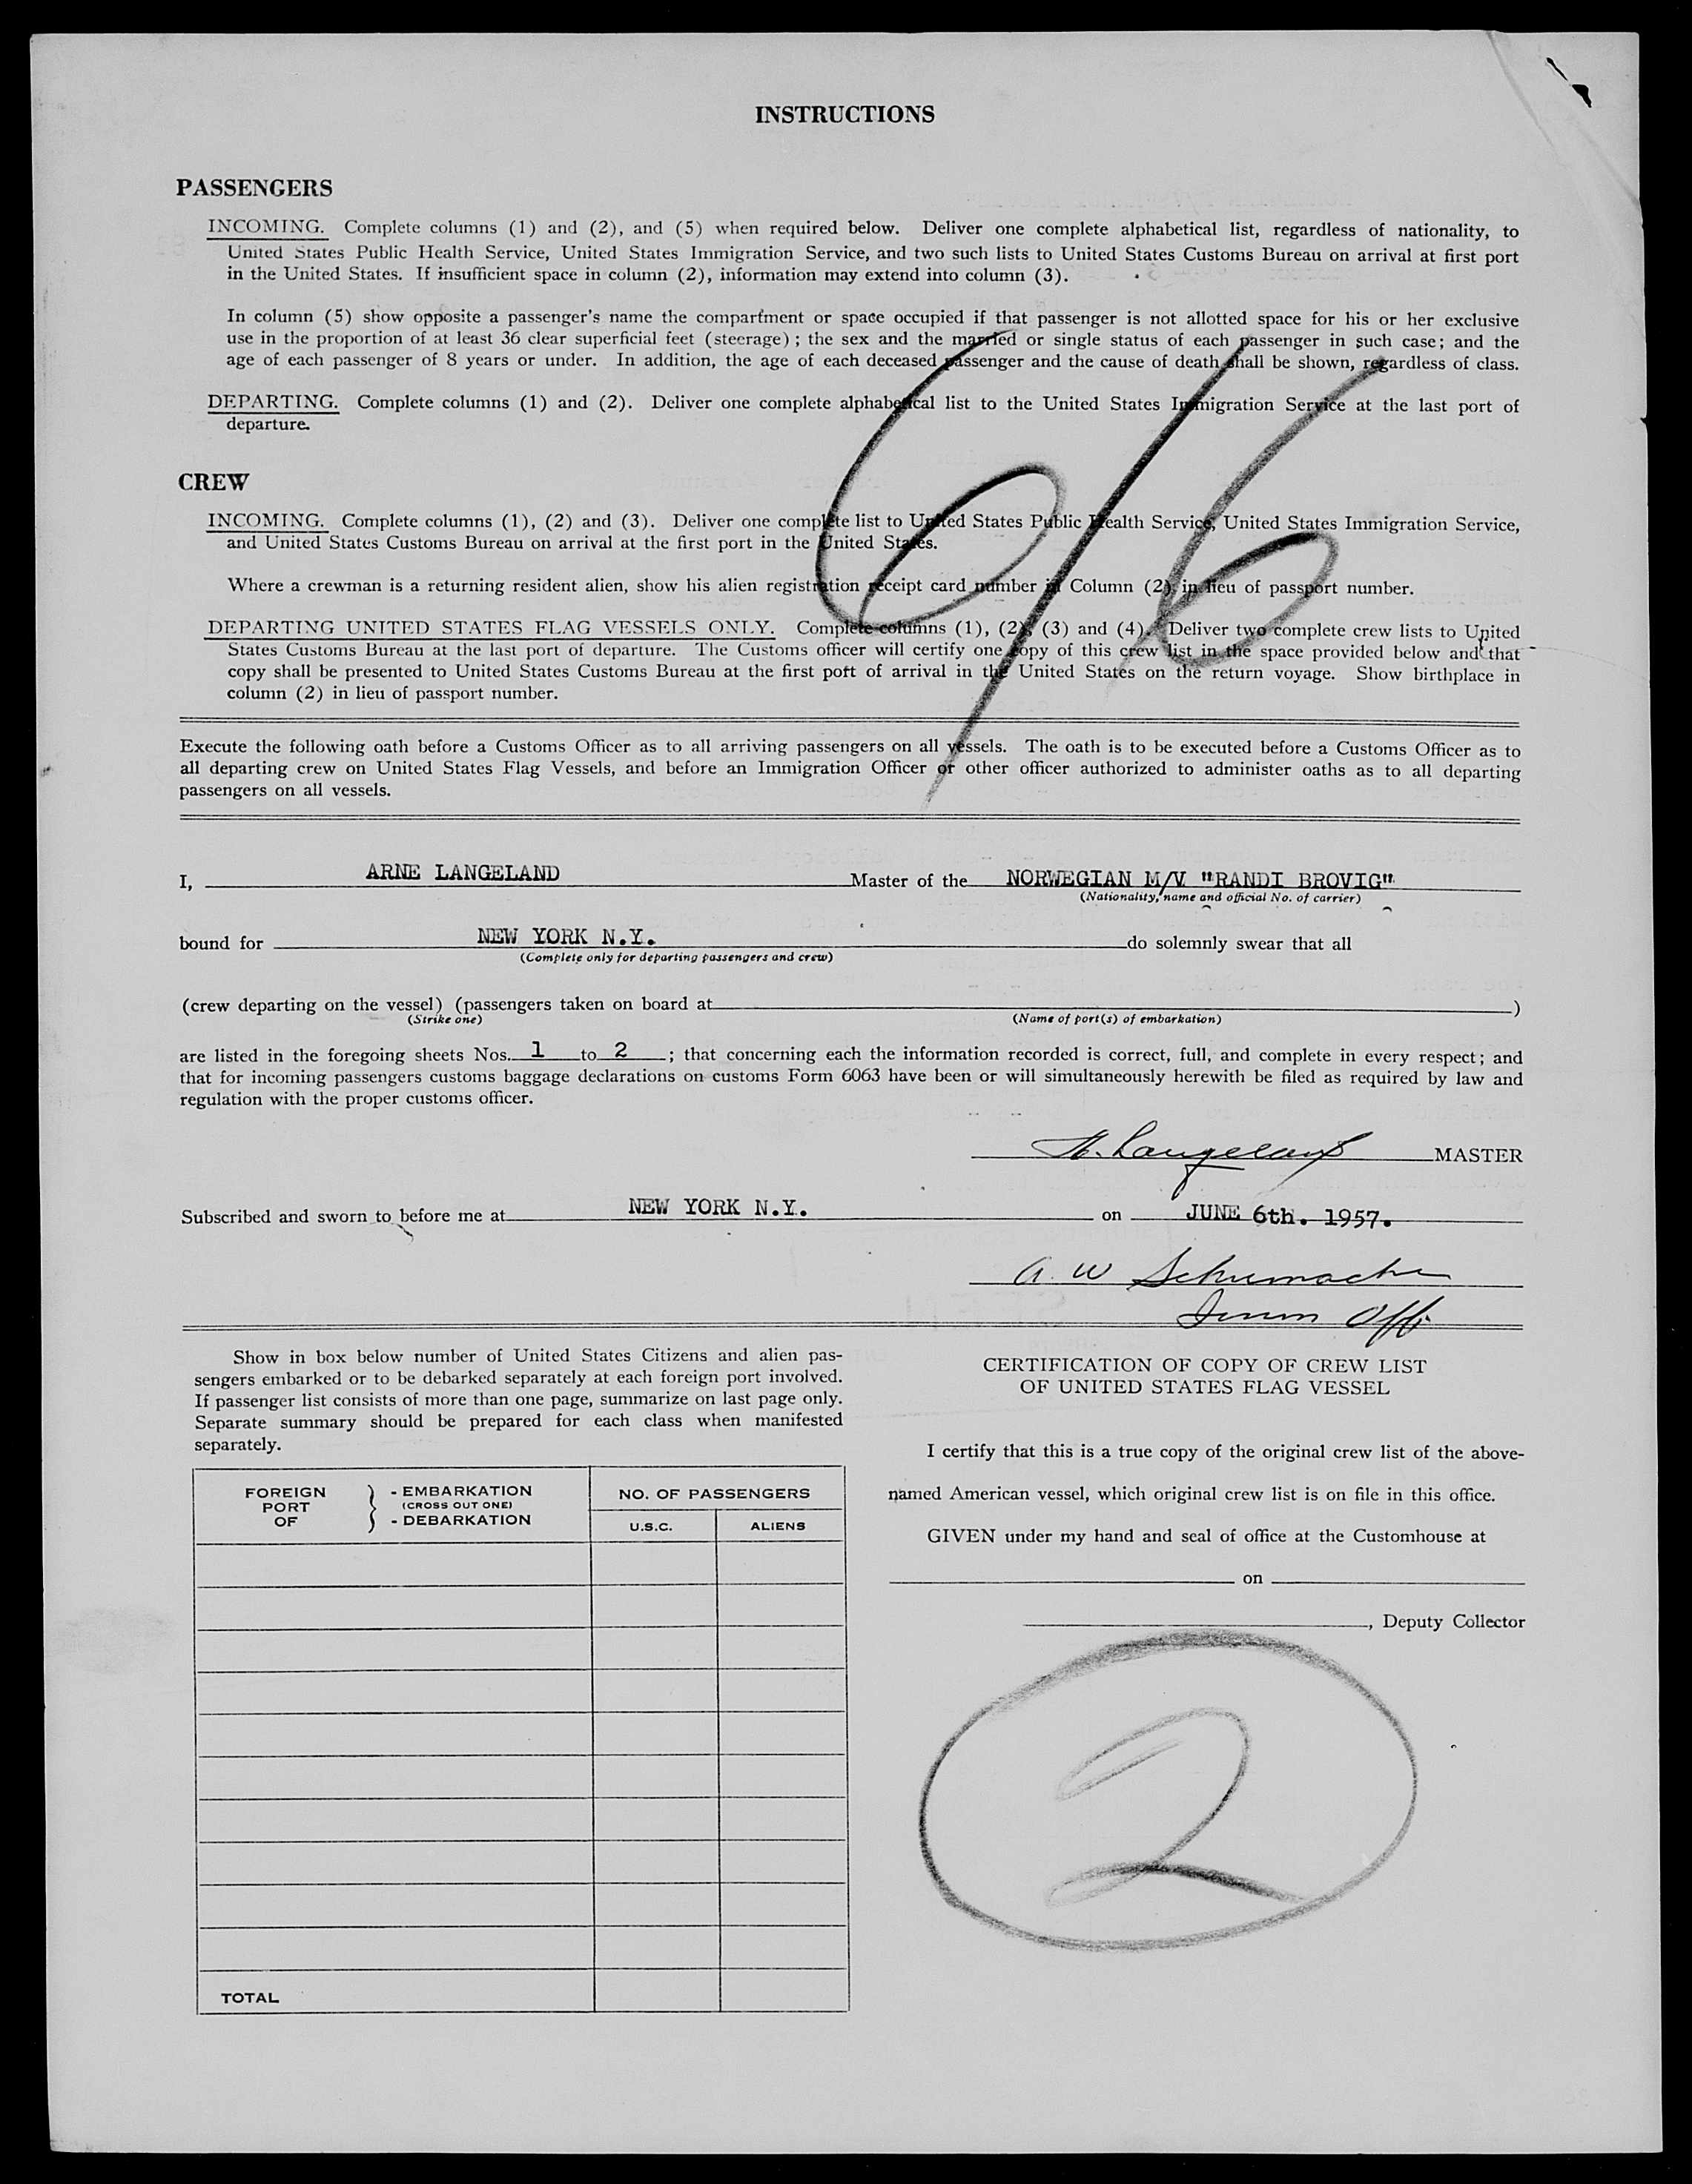 INSTRUCTIONS
PASSENGERS
INCOMING. Complete columns (1) and (2), and (5) when required below. Deliver one complete alphabetical list, regardless of nationality, to
United States Public Health Service, United States Immigration Service, and two such lists to United States Customs Bureau on arrival at first port
in the United States. If insufficient space in column (2), information may extend into column (3).
In column (5) show opposite a passenger's name the compartment or space occupied if that passenger is not allotted space for his or her exclusive
use in the proportion of at least 36 clear superficial feet (steerage); the sex and the married or single status of each passenger in such case; and the
age of each passenger of 8 years or under. In addition, the age of each deceased passenger and the cause of death shall be shown, regardless of class.
DEPARTING. Complete columns (1) and (2). Deliver one complete alphabetical list to the United States Immigration Service at the last port of
departure.
6/6
CREW
INCOMING. Complete columns (1), (2) and (3). Deliver one complete list to United States Public Health Service, United States Immigration Service,
and United States Customs Bureau on arrival at the first port in the United States.
Where a crewman is a returning resident alien, show his alien registration receipt card number in Column (2) in lieu of passport number.
DEPARTING UNITED STATES FLAG VESSELS ONLY. Complete columns (1), (2), (3) and (4). Deliver two complete crew lists to United
States Customs Bureau at the last port of departure. The Customs officer will certify one copy of this crew list in the space provided below and that
copy shall be presented to United States Customs Bureau at the first port of arrival in the United States on the return voyage. Show birthplace in
column (2) in lieu of passport number.
Execute the following oath before a Customs Officer as to all arriving passengers on all vessels. The oath is to be executed before a Customs Officer as to
all departing crew on United States Flag Vessels, and before an Immigration Officer or other officer authorized to administer oaths as to all departing
passengers on all vessels.
I, ARNE LANGELAND Master of the NORWEGIAN M/V "RANDI BROVIG"
(Nationality, name and official No. of carrier)
bound for NEW YORK N.Y. do solemnly swear that all
(Complete only for departing passengers and crew)
(crew departing on the vessel) (passengers taken on board at )
(Strike one) (Name of port(s) of embarkation)
are listed in the foregoing sheets Nos. 1 to 2 ; that concerning each the information recorded is correct, full, and complete in every respect; and
that for incoming passengers customs baggage declarations on customs Form 6063 have been or will simultaneously herewith be filed as required by law and
regulation with the proper customs officer.
A. Langeland MASTER
Subscribed and sworn to before me at NEW YORK N.Y. on JUNE 6th. 1957.
A. W Schumacher
Imm Off
Show in box below number of United States Citizens and alien pas-
sengers embarked or to be debarked separately at each foreign port involved.
If passenger list consists of more than one page, summarize on last page only.
Separate summary should be prepared for each class when manifested
separately.
FOREIGN PORT OF } - EMBARKATION (CROSS OUT ONE) - DEBARKATION
NO. OF PASSENGERS
U.S.C. ALIENS
TOTAL
CERTIFICATION OF COPY OF CREW LIST
OF UNITED STATES FLAG VESSEL
I certify that this is a true copy of the original crew list of the above-
named American vessel, which original crew list is on file in this office.
GIVEN under my hand and seal of office at the Customhouse at
on
, Deputy Collector
2